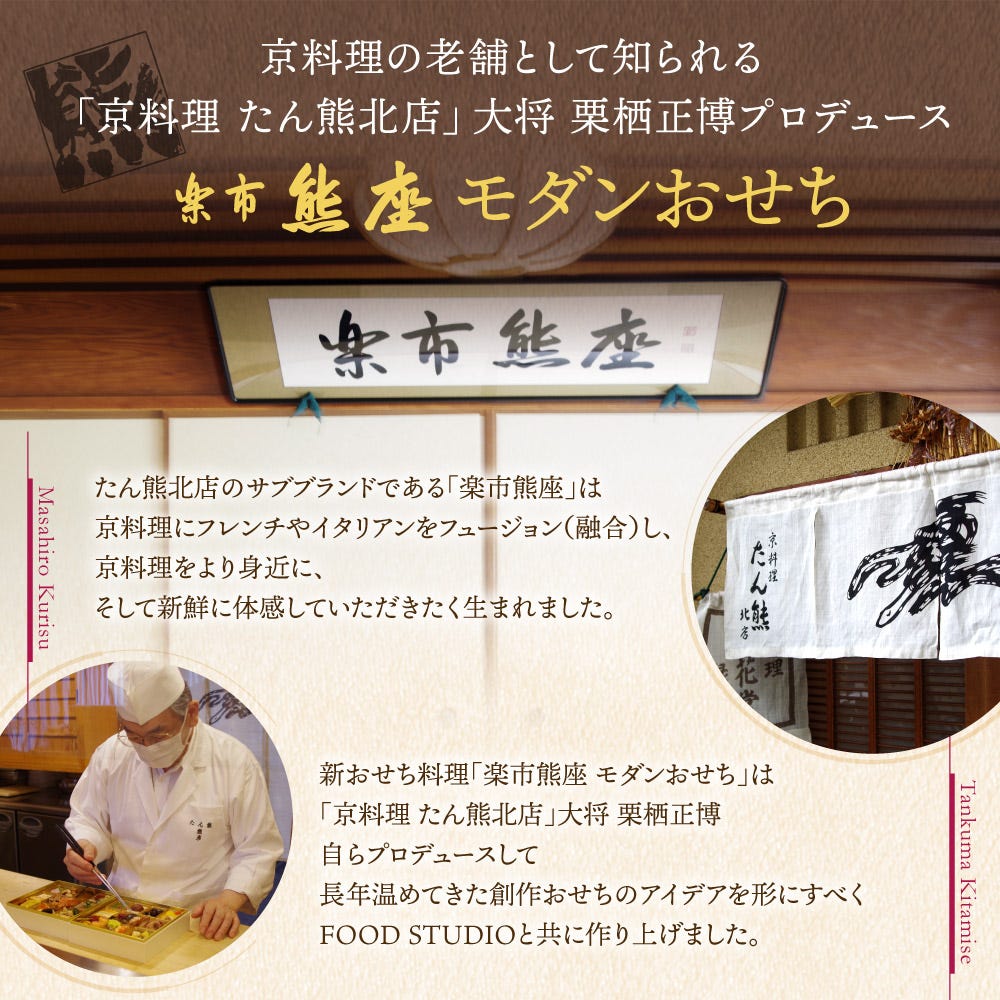 京料理の老舗として知られる
「京料理 たん熊北店」大将 栗栖正博プロデュース
楽市 熊座 モダンおせち
楽市熊座
たん熊北店のサブブランドである「楽市熊座」は
京料理にフレンチやイタリアンをフュージョン（融合）し、
京料理をより身近に、
そして新鮮に体感していただきたく生まれました。
Masahiro Kurisu
京料理
たん熊
北店
理
花堂
たん熊
新おせち料理「楽市熊座 モダンおせち」は
「京料理 たん熊北店」大将 栗栖正博
自らプロデュースして
長年温めてきた創作おせちのアイデアを形にすべく
FOOD STUDIOと共に作り上げました。
Tankuma Kitamise